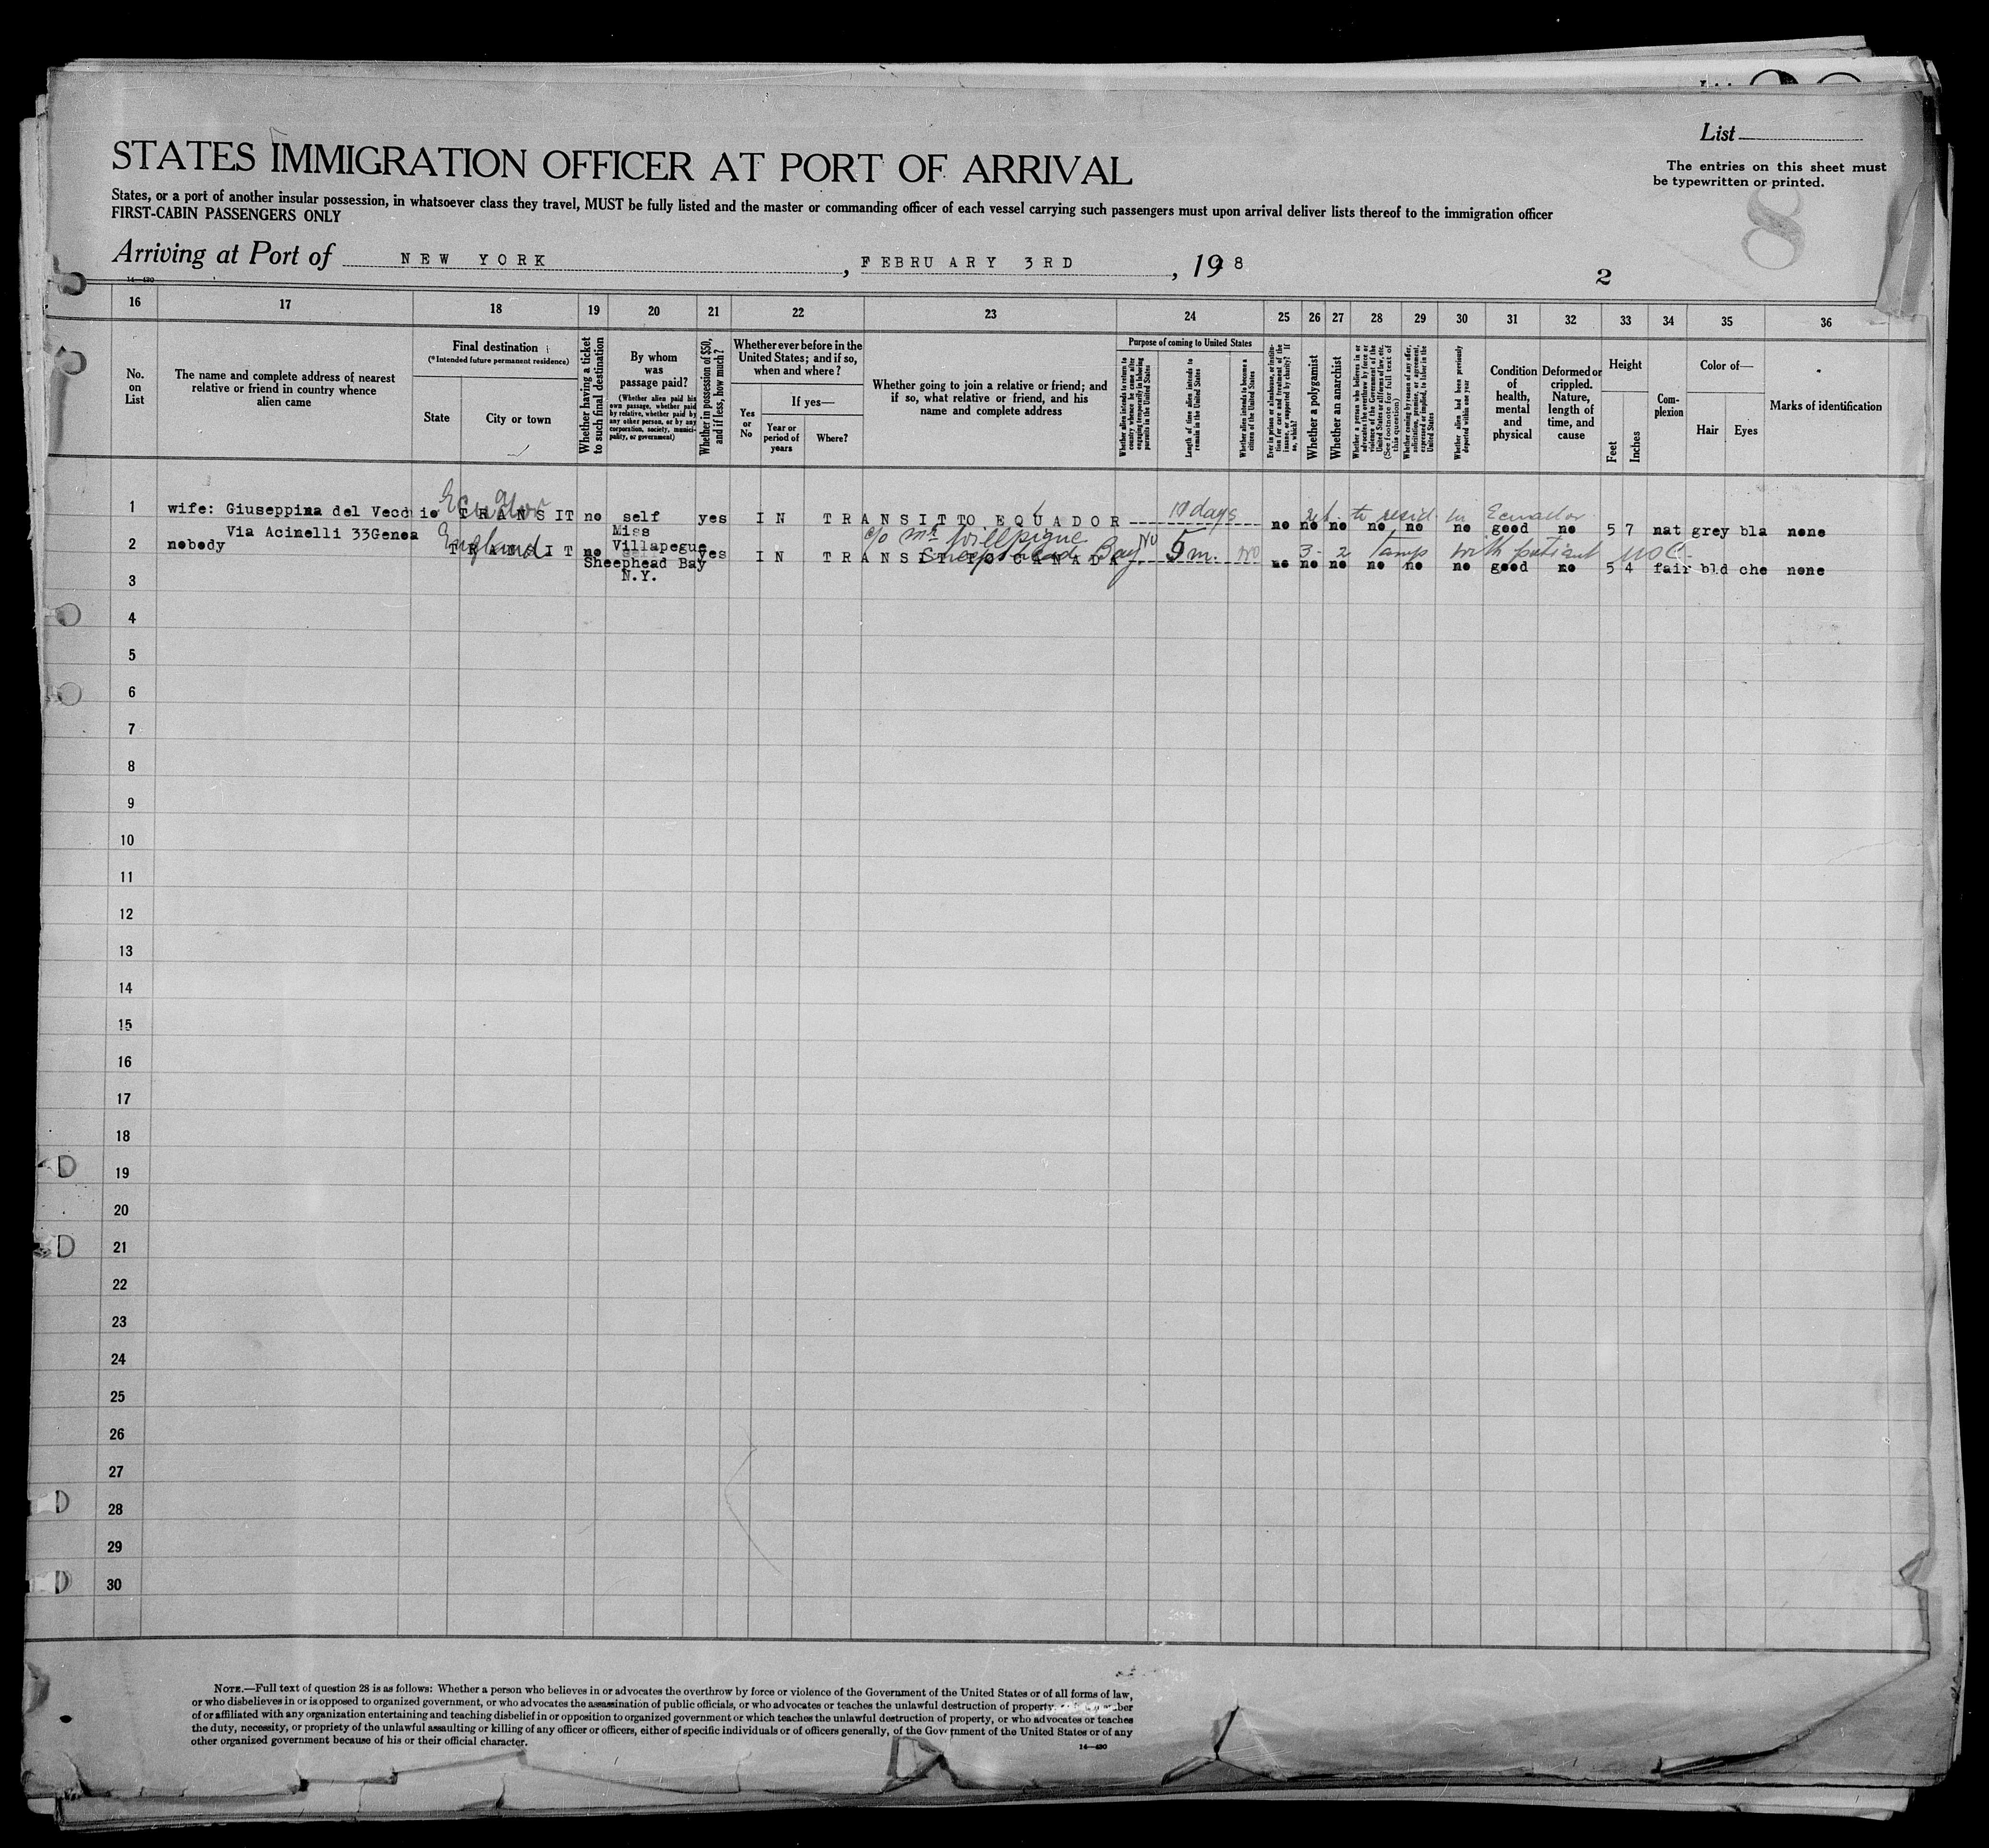 List
STATES IMMIGRATION OFFICER AT PORT OF ARRIVAL
The entries on this sheet must
be typewritten or printed.
States, or a port of another insular possession, in whatsoever class they travel, MUST be fully listed and the master or commanding officer of each vessel carrying such passengers must upon arrival deliver lists thereof to the immigration officer
FIRST-CABIN PASSENGERS ONLY
8
Arriving at Port of NEW YORK, FEBRUARY 3RD, 1928
2
14—430
16 17 18 19 20 21 22 23 24 25 26 27 28 29 30 31 32 33 34 35 36
No. on List
The name and complete address of nearest relative or friend in country whence alien came
Final destination
(*Intended future permanent residence)
State
City or town
Whether having a ticket to such final destination
By whom was passage paid?
(Whether alien paid his own passage, whether paid by relative, whether paid by any other person, or by any corporation, society, municipality, or government)
Whether in possession of $50, and if less, how much?
Whether ever before in the United States; and if so, when and where?
Yes or No
If yes—
Year or period of years
Where?
Whether going to join a relative or friend; and if so, what relative or friend, and his name and complete address
Purpose of coming to United States
Whether alien intends to return to country whence he came after engaging temporarily in laboring pursuits in the United States
Length of time alien intends to remain in the United States
Whether alien intends to become a citizen of the United States
Ever in prison or almshouse, or institution for care and treatment of the insane, or supported by charity? If so, which?
Whether a polygamist
Whether an anarchist
Whether a person who believes in or advocates the overthrow by force or violence of the Government of the United States or all forms of law, etc. (See footnote for full text of this question)
Whether coming by reason of any offer, solicitation, promise, or agreement, expressed or implied, to labor in the United States
Whether alien had been previously deported within one year
Condition of health, mental and physical
Deformed or crippled. Nature, length of time, and cause
Height
Feet
Inches
Complexion
Color of—
Hair
Eyes
Marks of identification
Ecuador 10 days to resid in Ecuador
1 wife: Giuseppina del Vecchio TRANSIT no self yes IN TRANSIT TO EQUADOR no no no no no no good no 5 7 nat grey bla none
Via Acinelli 33Genoa
England Miss c/o Mr Willpigue
Sheepshead Bay No 5 m. No 3-2
2 nobody TRANSIT no Villapegue yes IN TRANSIT TO CANADA no no no no no no good no 5 4 fair bld che none
Sheephead Bay
N.Y.
3
4
5
6
7
8
9
10
11
12
13
14
15
16
17
18
19
20
21
22
23
24
25
26
27
28
29
30
NOTE.—Full text of question 28 is as follows: Whether a person who believes in or advocates the overthrow by force or violence of the Government of the United States or of all forms of law,
or who disbelieves in or is opposed to organized government, or who advocates the assassination of public officials, or who advocates or teaches the unlawful destruction of property,
of or affiliated with any organization entertaining and teaching disbelief in or opposition to organized government or which teaches the unlawful destruction of property, or who advocates or teaches
the duty, necessity, or propriety of the unlawful assaulting or killing of any officer or officers, either of specific individuals or of officers generally, of the Government of the United States or of any
other organized government because of his or their official character.
14—430